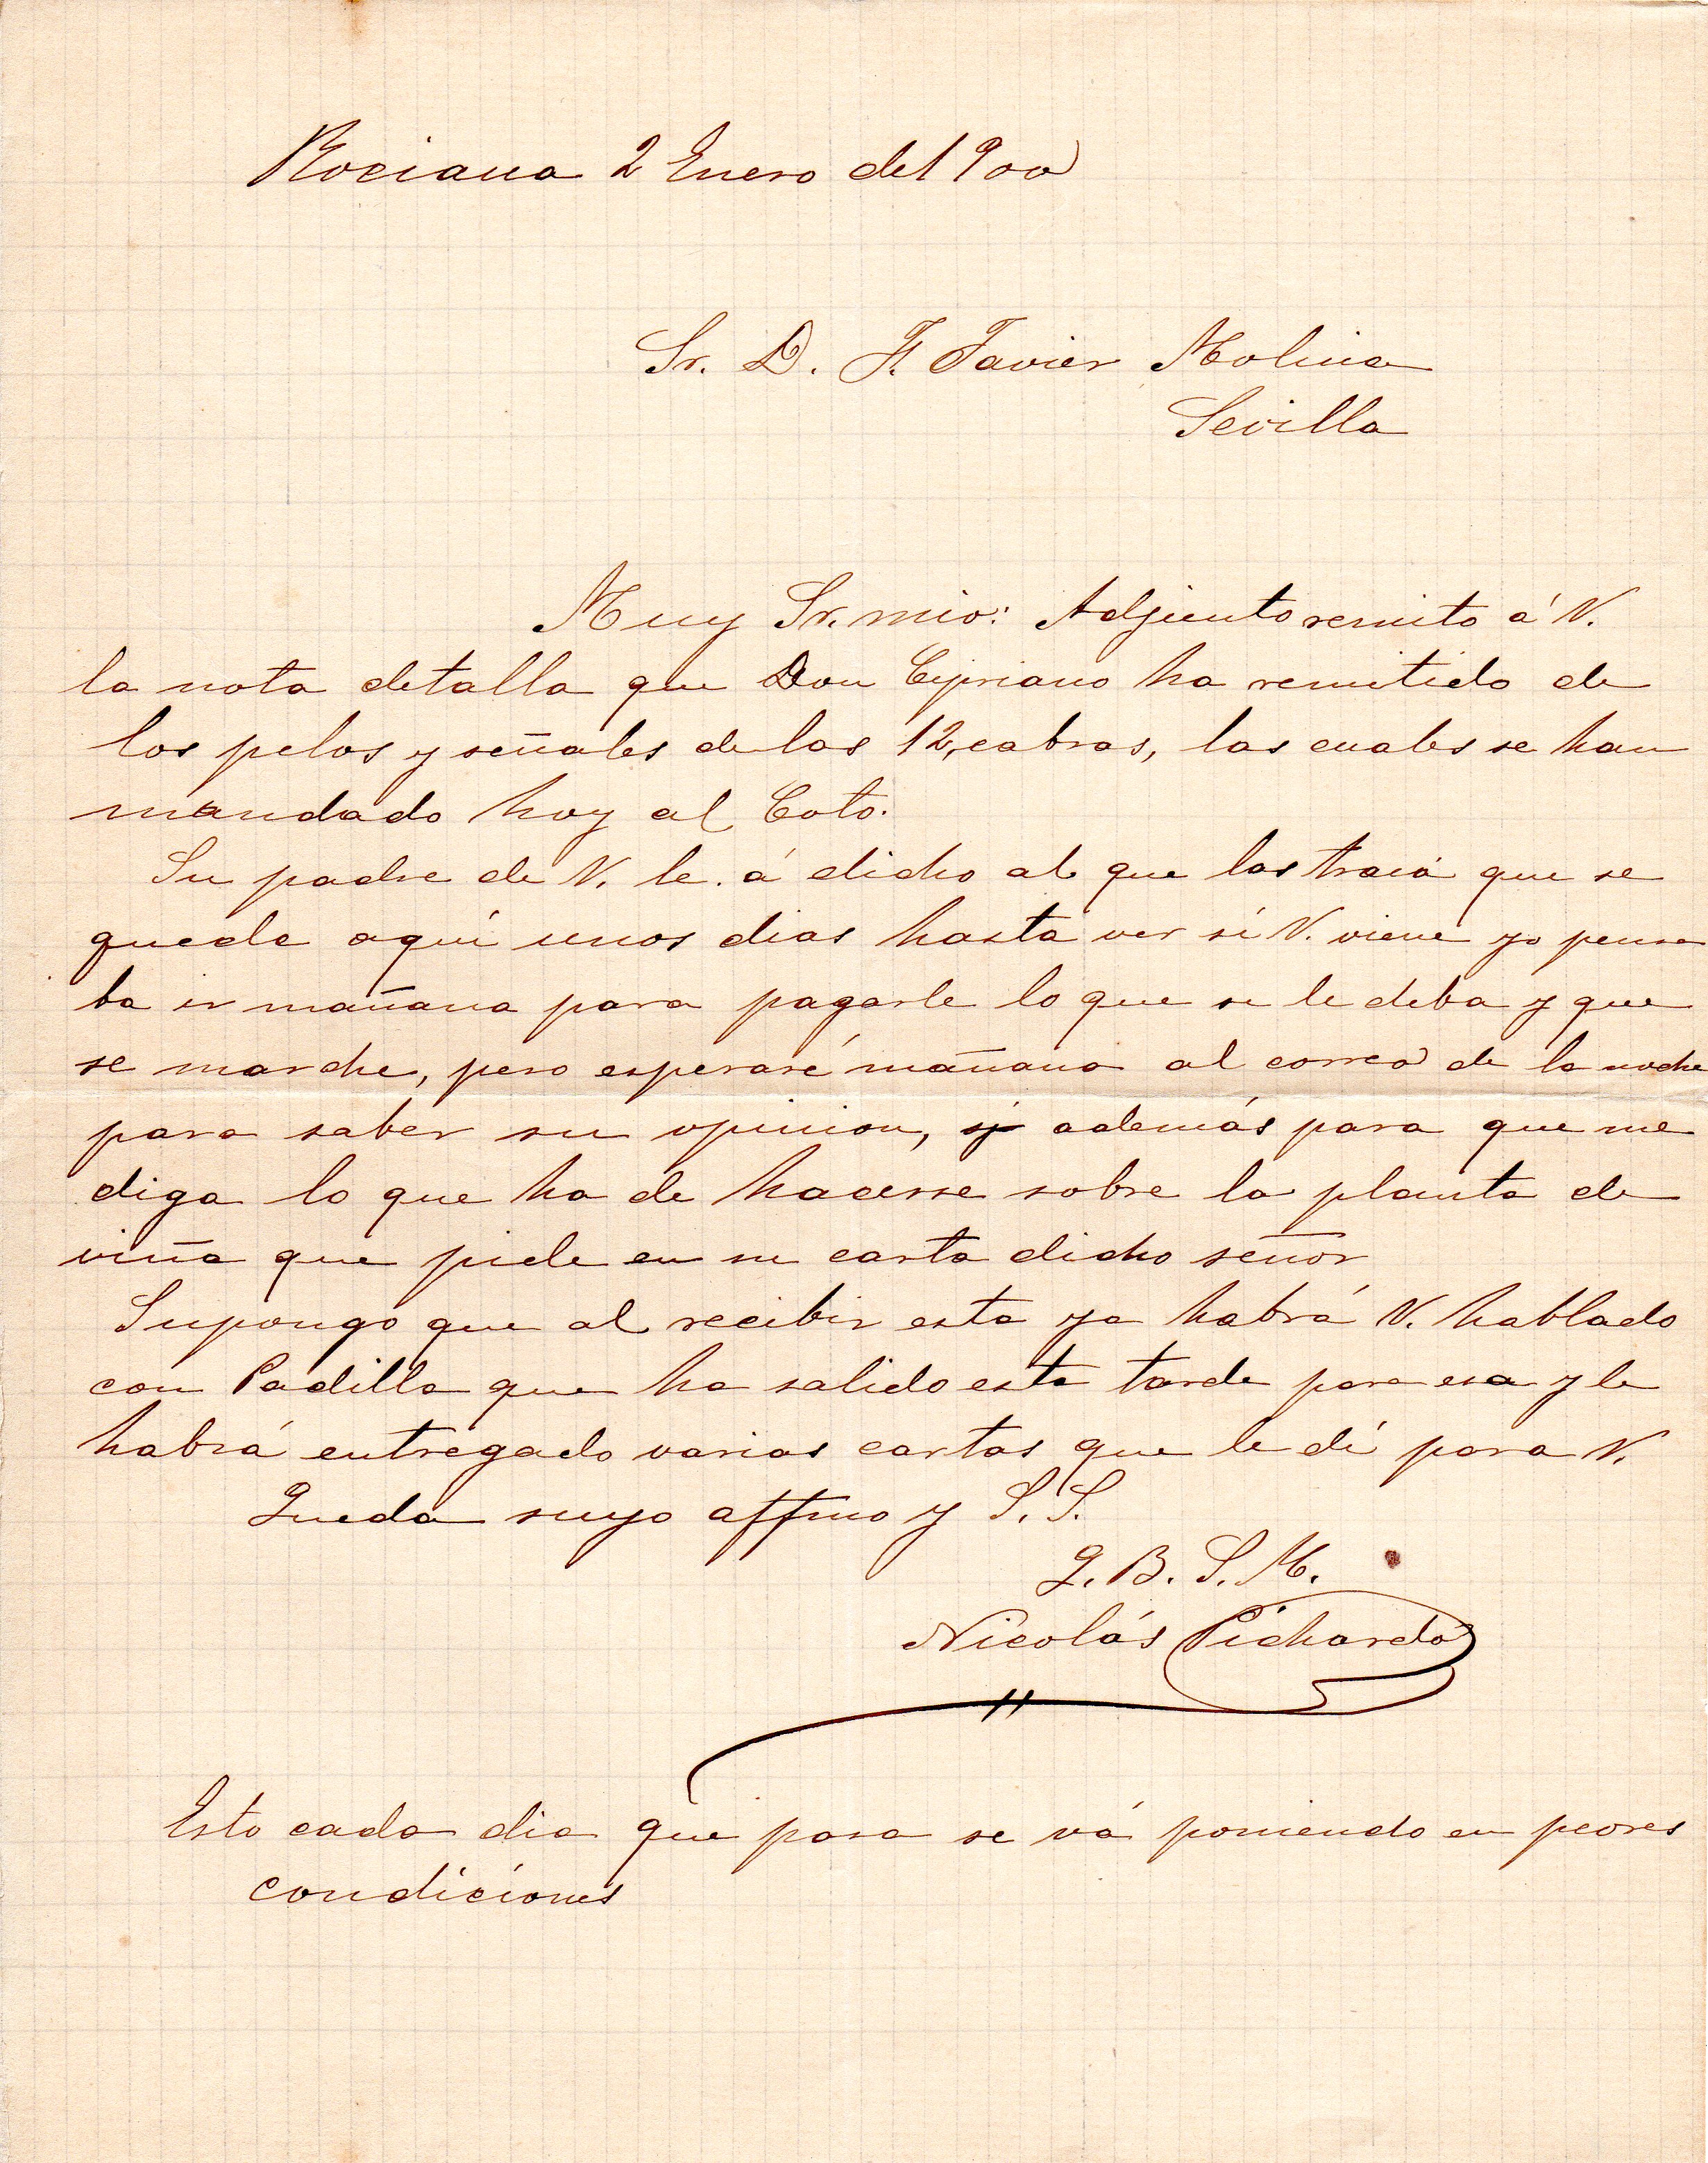 Rociana 2 Enero del 900
Sr. D. F. Javier Molina
Sevilla
Muy Sr. mio: Adjunto remito á V.
la nota detalla que Don Cipriano ha remitido de
los pelos y señales de las 12, cabras, las cuales se han
mandado hoy al Coto.
Su padre de V. le á dicho al que las traia que se
quede aqui unos dias hasta ver si V. viene yo pensa
ba ir mañana para pagarle lo que se le deba y que
se marche, pero esperaré mañana al correo de la noche
para saber su opinion, y además para que me
diga lo que ha de hacerse sobre la planta de
viña que pide en su carta dicho señor
Supongo que al recibir esta ya habrá V. hablado
con Padilla que ha salido esta tarde para esa y le
habrá entregado varias cartas que le dí para V.
Queda suyo affmo y S. S.
Q. B. S. M.
Nicolás Pichardo
Esto cada dia que pasa se vá poniendo en peores
condiciones